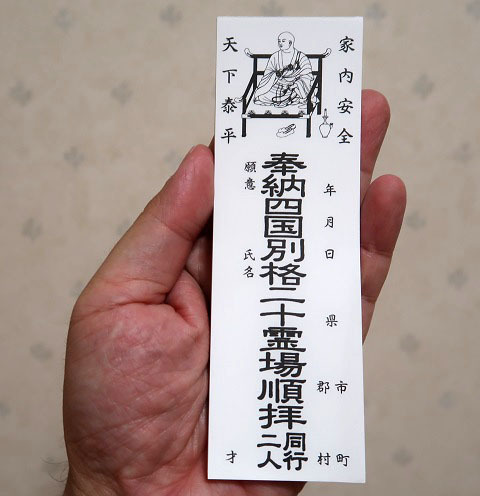 家内安全
年 月 日
県 市 郡 町 村
奉納四国別格二十霊場順拝
同行
二人
天下泰平
願意
氏名
才